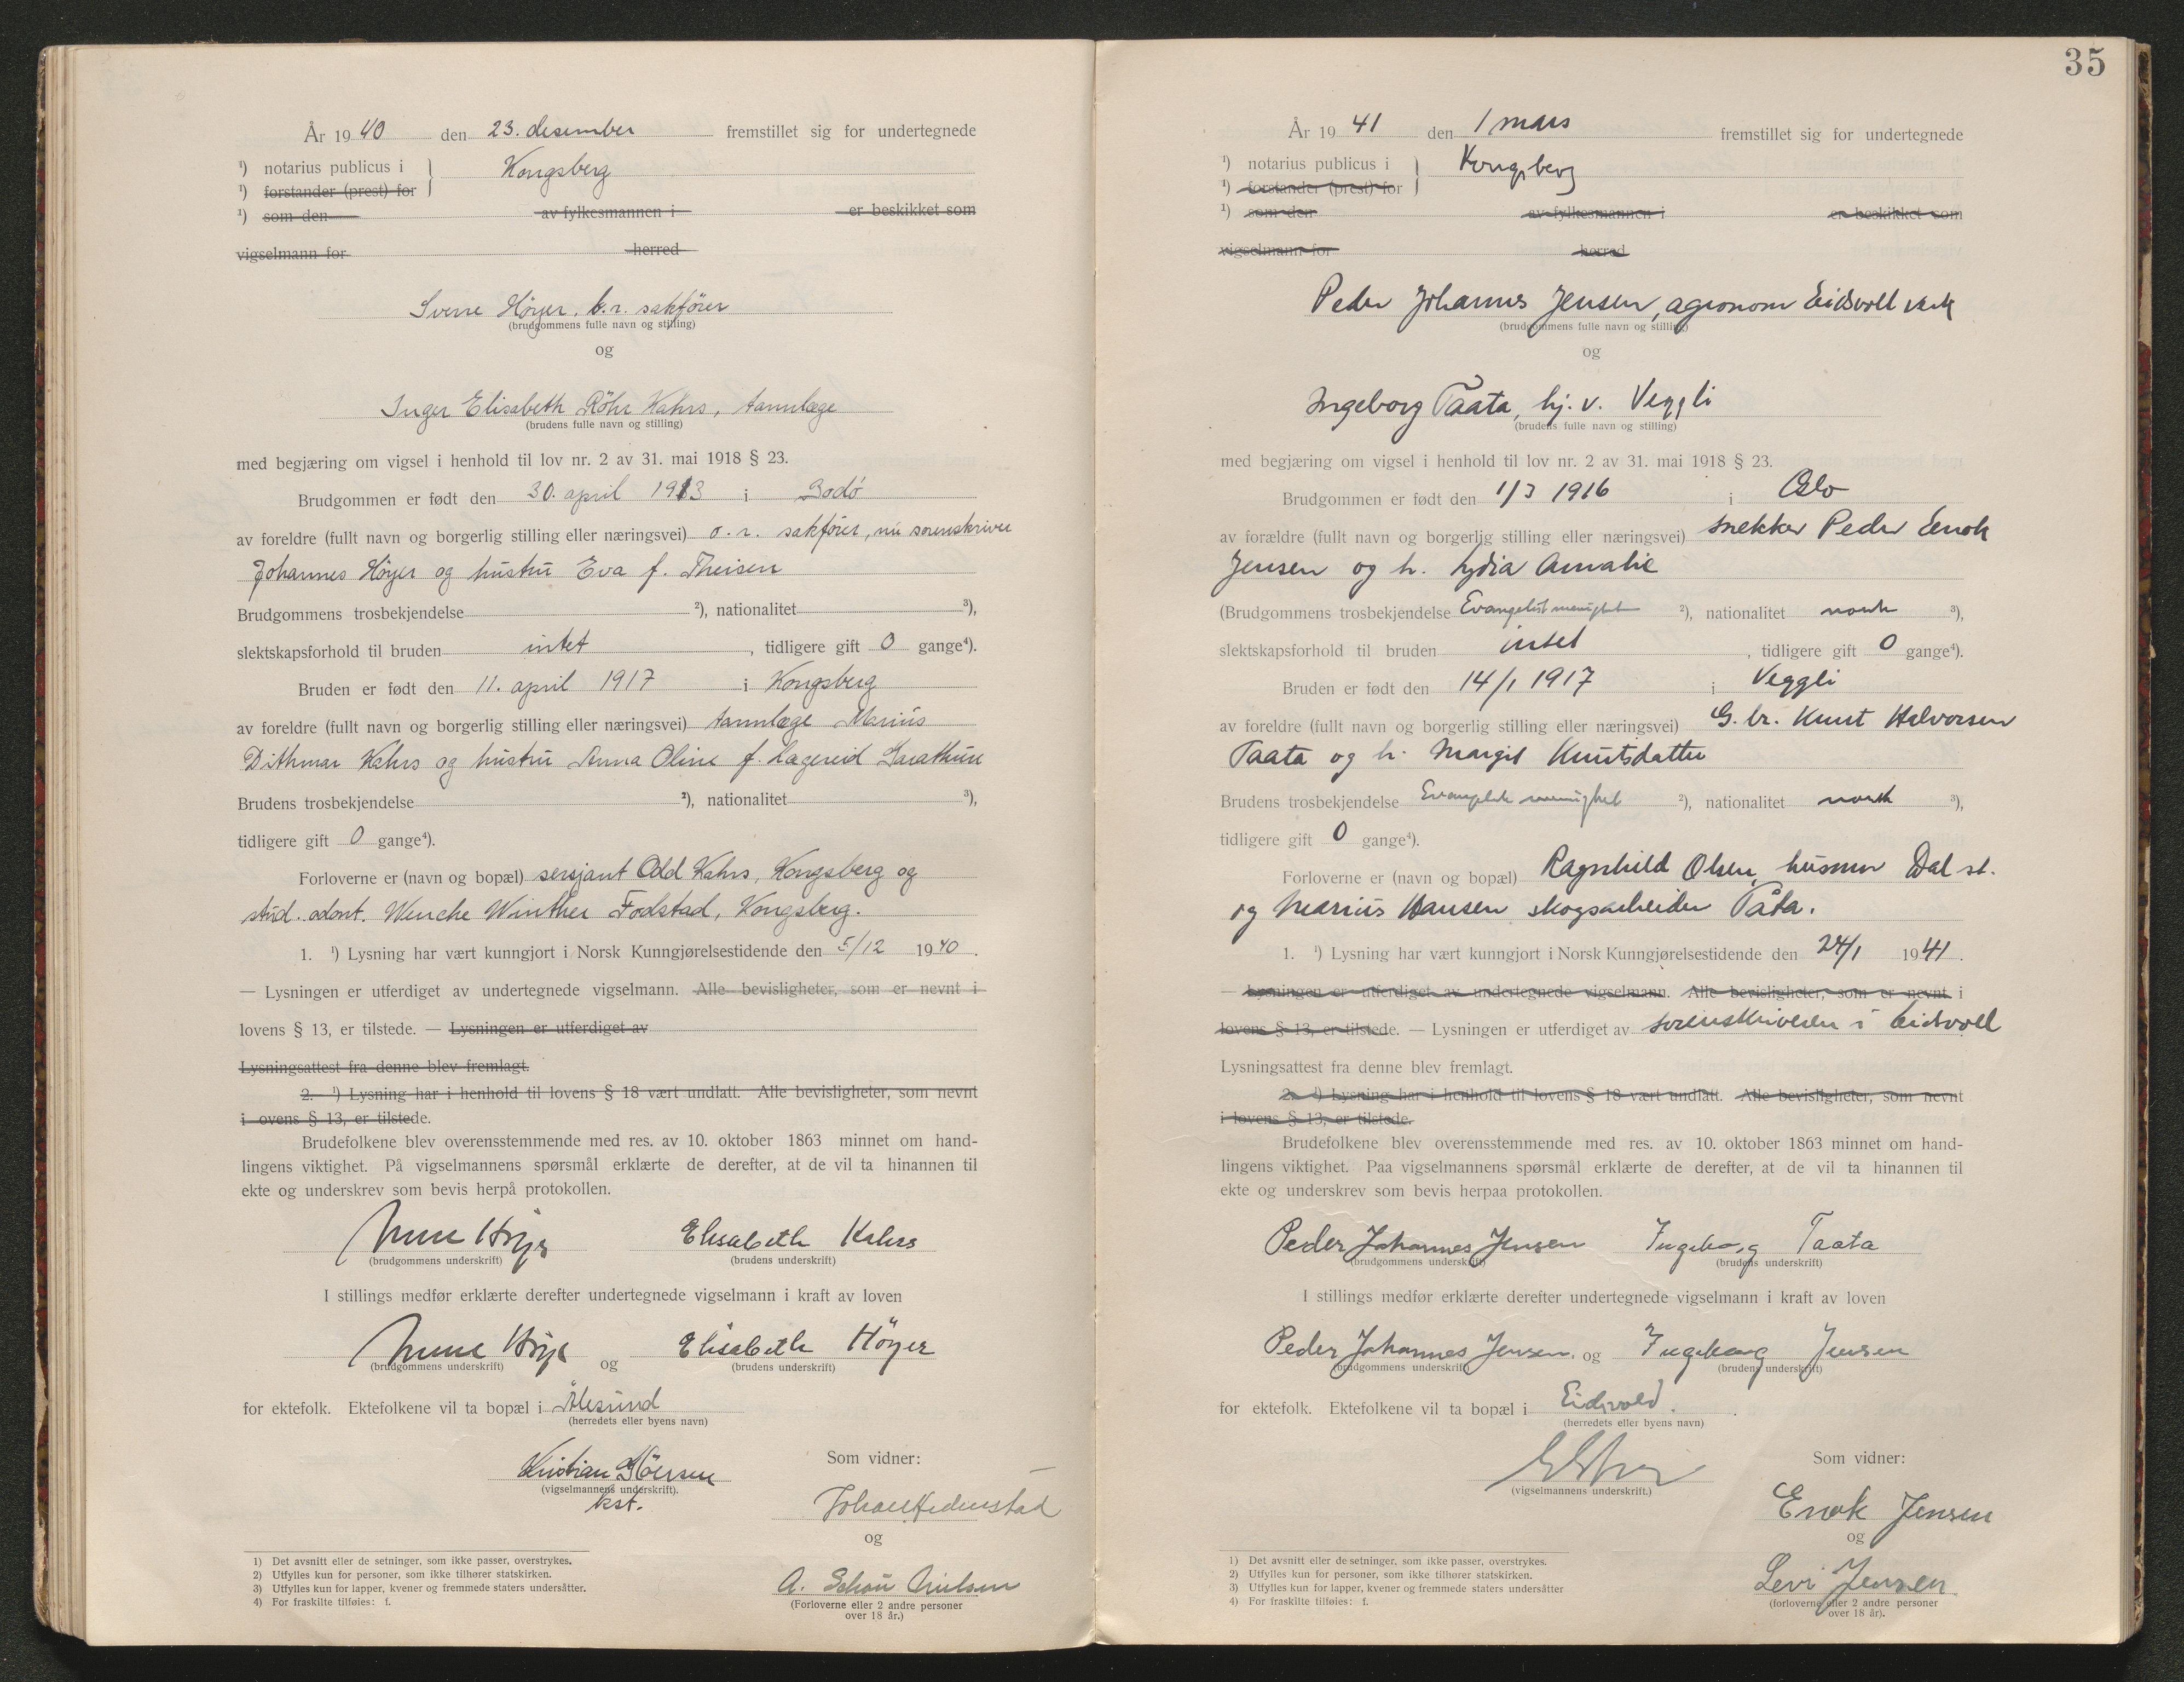 År 1940 den 23. desember fremstillet sig for undertegnede
¹) notarius publicus i } Kongsberg
¹) forstander (prest) for
¹) som den av fylkesmannen i er beskikket som
vigselmann for herred
Sverre Höyer, h.r. sakförer
(brudgommens fulle navn og stilling)
og
Inger Elisabeth Röhr Kahrs, tannlæge
(brudens fulle navn og stilling)
med begjæring om vigsel i henhold til lov nr. 2 av 31. mai 1918 § 23.
Brudgommen er født den 30. april 1913 i Bodö
av foreldre (fullt navn og borgerlig stilling eller næringsvei) o.r. sakförer, nu sorenskriver
Johannes Höyer og hustru Eva f. Theisen
Brudgommens trosbekjendelse ²), nationalitet ³),
slektskapsforhold til bruden intet , tidligere gift 0 gange⁴).
Bruden er født den 11. april 1917 i Kongsberg
av foreldre (fullt navn og borgerlig stilling eller næringsvei) tannlæge Marius
Dithmar Kahrs og hustru Anna Oline f. Lagereid
Brudens trosbekjendelse ²), nationalitet ³),
tidligere gift 0 gange⁴).
Forloverne er (navn og bopæl) sersjant Odd Kahrs, Kongsberg og
stud. odont. Wenche Winther Fodstad, Kongsberg.
1. ¹) Lysning har vært kunngjort i Norsk Kunngjørelsestidende den 5/12 1940.
— Lysningen er utferdiget av undertegnede vigselmann. Alle bevisligheter, som er nevnt i
lovens § 13, er tilstede. — Lysningen er utferdiget av
Lysningsattest fra denne blev fremlagt.
2. ¹) Lysning har i henhold til lovens § 18 vært undlatt. Alle bevisligheter, som nevnt
i ovens § 13, er tilstede.
Brudefolkene blev overensstemmende med res. av 10. oktober 1863 minnet om hand-
lingens viktighet. På vigselmannens spørsmål erklærte de derefter, at de vil ta hinannen til
ekte og underskrev som bevis herpå protokollen.
Sverre Höyer Elisabeth Kahrs
(brudgommens underskrift) (brudens underskrift)
I stillings medfør erklærte derefter undertegnede vigselmann i kraft av loven
Sverre Höyer og Elisabeth Höyer
(brudgommens underskrift) (brudens underskrift)
for ektefolk. Ektefolkene vil ta bopæl i Ålesund
(herredets eller byens navn)
Kristian
(vigselmannens underskrift).
kst.
Som vidner:
Johan Hedenstad
og
A. Schou Nielsen
(Forloverne eller 2 andre personer
over 18 år.)
1) Det avsnitt eller de setninger, som ikke passer, overstrykes.
2) Utfylles kun for personer, som ikke tilhører statskirken.
3) Utfylles kun for lapper, kvener og fremmede staters undersåtter.
4) For fraskilte tilføies: f.
35
År 1941 den 1 mars fremstillet sig for undertegnede
¹) notarius publicus i } Kongsberg
¹) forstander (prest) for
¹) som den av fylkesmannen i er beskikket som
vigselmann for herred
Peder Johannes Jensen, agronom Eidsvoll verk
(brudgommens fulle navn og stilling)
og
Ingeborg Taata, hj. v. Veggli
(brudens fulle navn og stilling)
med begjæring om vigsel i henhold til lov nr. 2 av 31. mai 1918 § 23.
Brudgommen er født den 1/3 1916 i Oslo
av forældre (fullt navn og borgerlig stilling eller næringsvei) snekker Peder Enok
Jensen og h. Lydia Amalie
(Brudgommens trosbekjendelse Evangelist menighet ²), nationalitet norsk ³),
slektskapsforhold til bruden intet , tidligere gift 0 gange⁴).
Bruden er født den 14/1 1917 i Veggli
av foreldre (fullt navn og borgerlig stilling eller næringsvei) G. br. Knut Halvorsen
Taata og h. Margit Knutsdatter
Brudens trosbekjendelse Evangelisk menighet ²), nationalitet norsk ³),
tidligere gift 0 gange⁴).
Forloverne er (navn og bopæl) Ragnhild Olsen, husmor Dal st.
og Marius Hansen skogsarbeider Påta.
1. ¹) Lysning har vært kunngjort i Norsk Kunngjørelsestidende den 24/1 1941.
— Lysningen er utferdiget av undertegnede vigselmann. Alle bevisligheter, som er nevnt i
lovens § 13, er tilstede. — Lysningen er utferdiget av sorenskriveren i Eidsvoll
Lysningsattest fra denne blev fremlagt.
2. ¹) Lysning har i henhold til lovens § 18 vært undlatt. Alle bevisligheter, som nevnt
i lovens § 13, er tilstede.
Brudefolkene blev overensstemmende med res. av 10. oktober 1863 minnet om hand-
lingens viktighet. Paa vigselmannens spørsmål erklærte de derefter, at de vil ta hinannen til
ekte og underskrev som bevis herpaa protokollen.
Peder Johannes Jensen Ingeborg Taata
(brudgommens underskrift) (brudens underskrift)
I stillings medfør erklærte derefter undertegnede vigselmann i kraft av loven
Peder Johannes Jensen. og Ingeborg Jensen
(brudgommens underskrift) (brudens underskrift)
for ektefolk. Ektefolkene vil ta bopæl i Eidsvold.
(herredets eller byens navn)
(vigselmannens underskrift.)
Som vidner:
Enok Jensen
og
Levi Jensen
(forloverne eller 2 andre personer
over 18 år).
1) Det avsnitt eller de setninger, som ikke passer, overstrykes.
2) Utfylles kun for personer, som ikke tilhører statskirken.
3) Utfylles kun for lapper, kvener og fremmede staters undersåtter
4) For fraskilte tilføies: f.